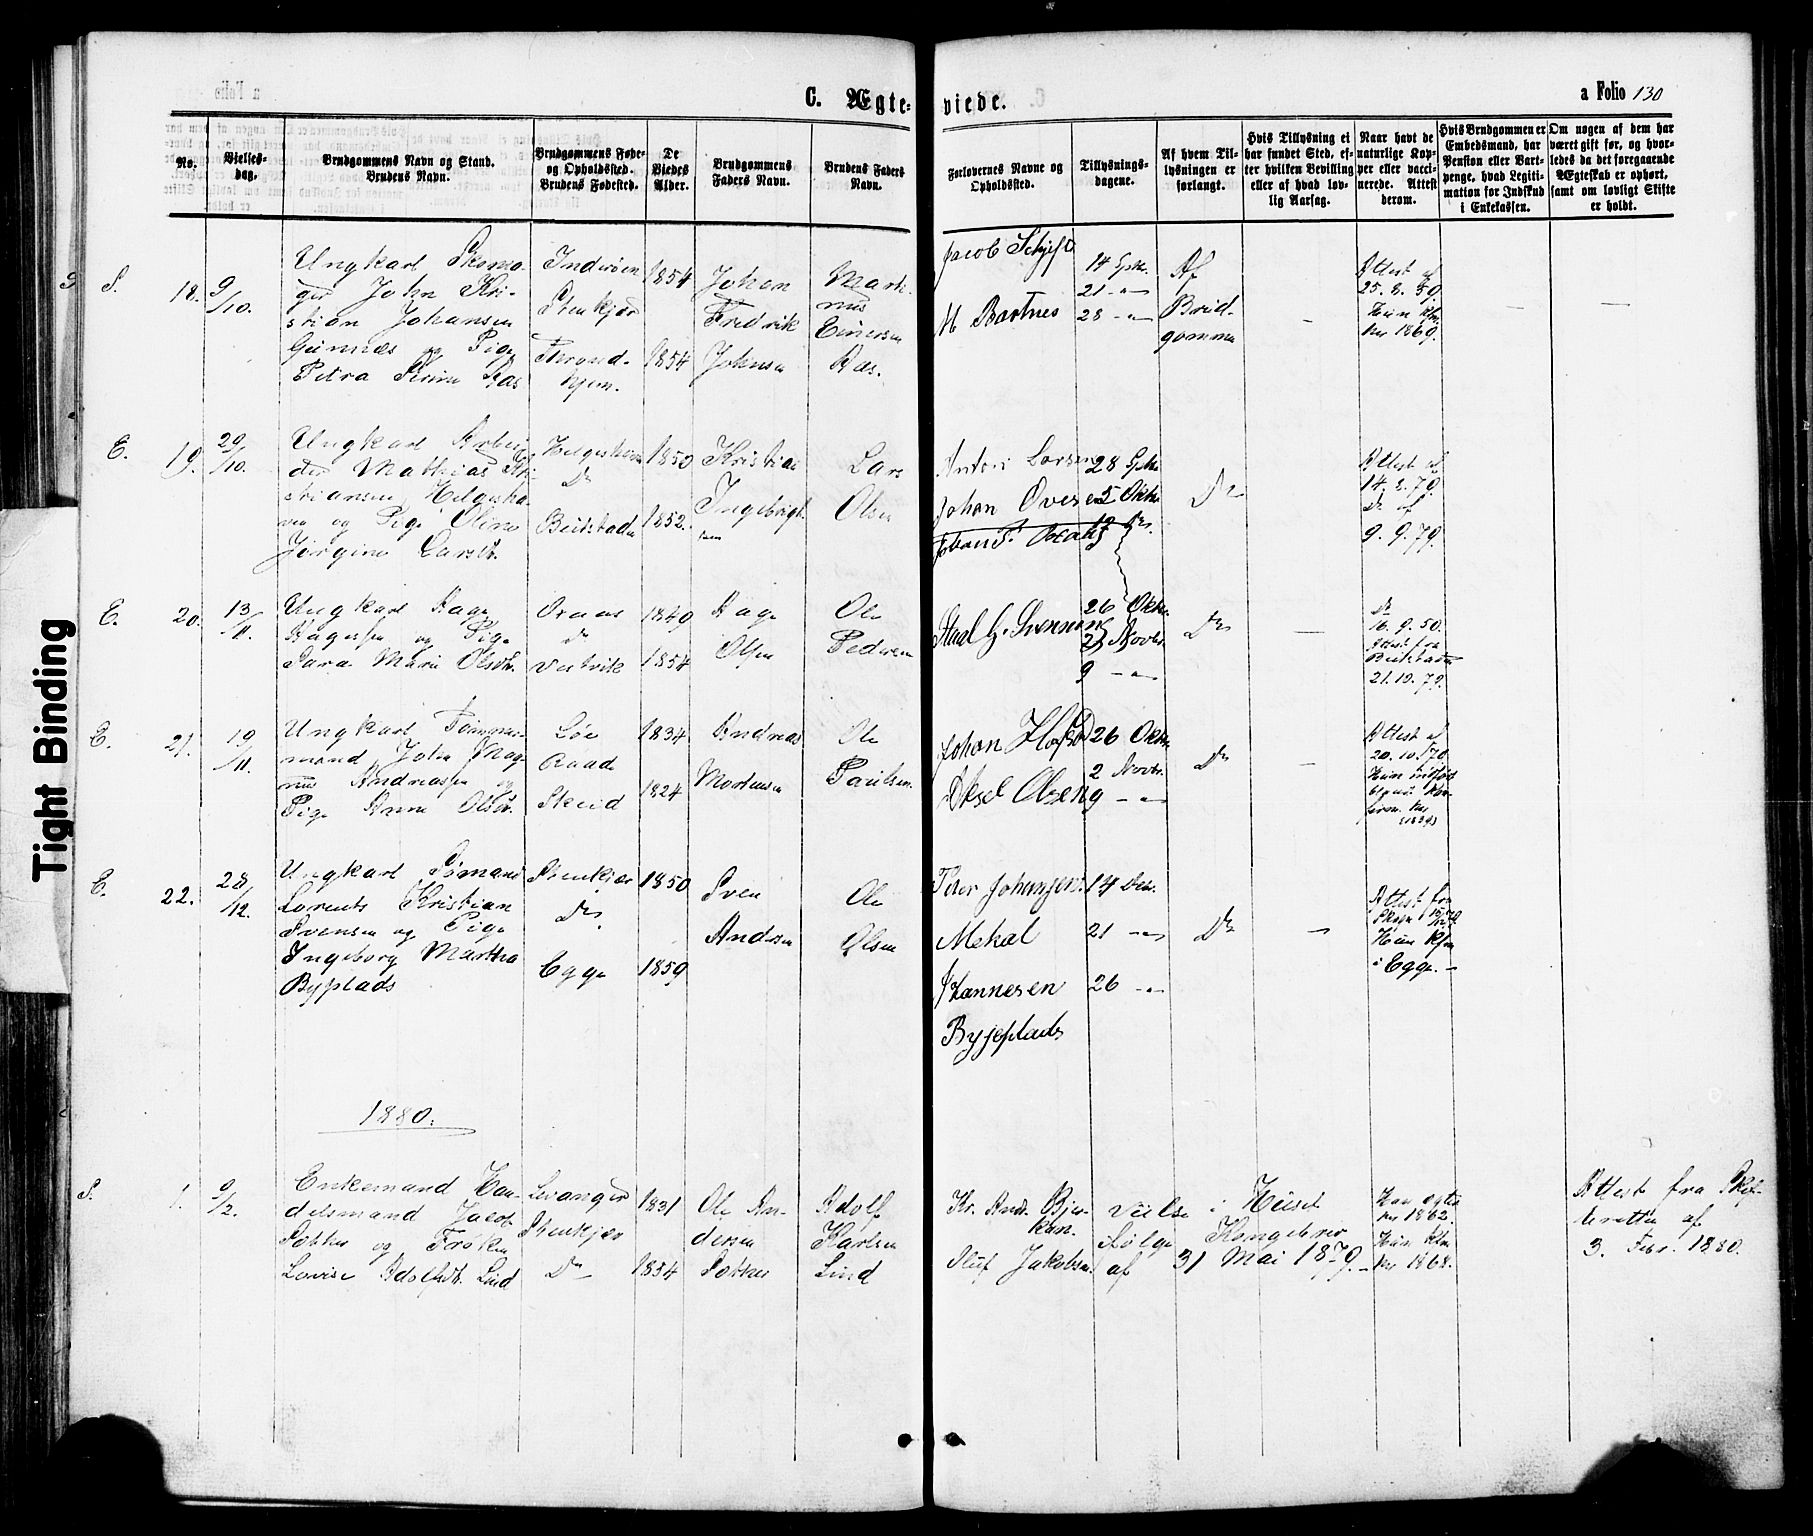 C. Ægte-
viede.
a Folio 130
No.
Vielses-
dag.
Brudgommens Navn og Stand.
Brudens Navn.
Brudgommens Føde-
og Opholdssted.
Brudens Fødested.
De
Viedes
Alder.
Brudgommens
Faders Navn.
Brudens Faders
Navn.
Forlovernes Navne og
Opholdssted.
Tillysnings-
dagene.
Af hvem Til-
lysningen er
forlangt.
Hvis Tillysning ei
har fundet Sted, ef-
ter hvilken Bevilling
eller af hvad lov-
lig Aarsag.
Naar havt de
naturlige Kop-
per eller vacci-
nerede. Attest
derom.
Hvis Brudgommen er
Embedsmand, har
Pension eller Vart-
penge, hvad Legiti-
mation for Indskud
i Enkekassen.
Om nogen af dem har
været gift før, og hvor-
ledes da det foregaaende
Ægteskab er ophørt,
samt om lovligt Skifte
er holdt.
S. 18. 9/10.
Ungkarl Skoma-
ger John Kri-
stian Johansen
Gunnes og Pige
Petra Ras
Inderøen
Stenkjær
Thrond-
hjem.
1854
1854
Johan
Fredrik
Johnsen
Mart-
nus
Einersen
Ras.
Jacob Schjefl
M Bartnes
14 Sptbr.
21 -"-
28 -"-
Af
Brud-
gommen
-
Attest af
25. 8. 59.
Hun Kfm
1869.
-
-
E. 19. 20/10.
Ungkarl Arbei-
der Mathias Kri-
stiansen Helgesha-
ven og Pige Oline
Jørgine Larsdtr.
Helgeshaven
Do
Beitstaden
1850
1852.
Kristian
Ingebrigt-
sen
Lars
Olsen
Anton Larsen
Johan Ovesen
28 Sptbr
5 Oktbr
12 Do.
Do
Attest af
14. 8. 79.
Do af
9. 9. 79.
E. 20. 13/11.
Ungkarl Hage
Hagessen og Pige
Sara Marie Olsdtr.
Oraas
Do
Vestvik
1849
1854
Hage
Olsen
Ole
Pedersen
26 Oktbr.
2 Novbr.
9 -"-
Do
-
Do
16. 9. 50.
Attest fra
Beitstaden
21. 10. 79.
E. 21. 19/11.
Ungkarl Tømmer-
mand John Mag-
nus Andreassen og
Pige Anne Olsdtr.
Løe
Raade
Skeid
1834
1824
Andreas
Mortensen
Ole
Paulsen.
Johan
Aksel Olsen
26 Oktbr
2 Novbr.
9 -"-
Do
-
Attest af
20. 10. 79.
Hun
(1829)
E. 22. 28/12.
Ungkarl Sømand
Lorents Kristian
Svensen og Pige
Ingeborg Martha
Byplads
Stenkjær
Do
Egge
1850
1859
Sven
Andersen
Ole
Olsen
Peter Johansen.
Mekal
Hannesen
Byjeplads
14 Dec.
21 -"-
26 -"-
Do
-
Attest fra
Hun Kfm
i Egge. -
1880.
S. 1. 9/2.
Enkemand Han-
delsmand Jacob
Sother og Frøken
Lovise Adolfsdtr. Lind
Levanger
Stenkjær
Do
1831
1854
Ole An-
dersen
Sother
Adolf
Karlsen
Lind
Kr. And. Bjer-
kan.
Oluf Jakobsen.
Vielse i Huset
ifølge Kongebrev
af 31 Mai 1879.-
Han egte
1862.
Hun Kfm
1868.
Attest fra Skif-
teretten af
3. Febr. 1880.
Tight Binding